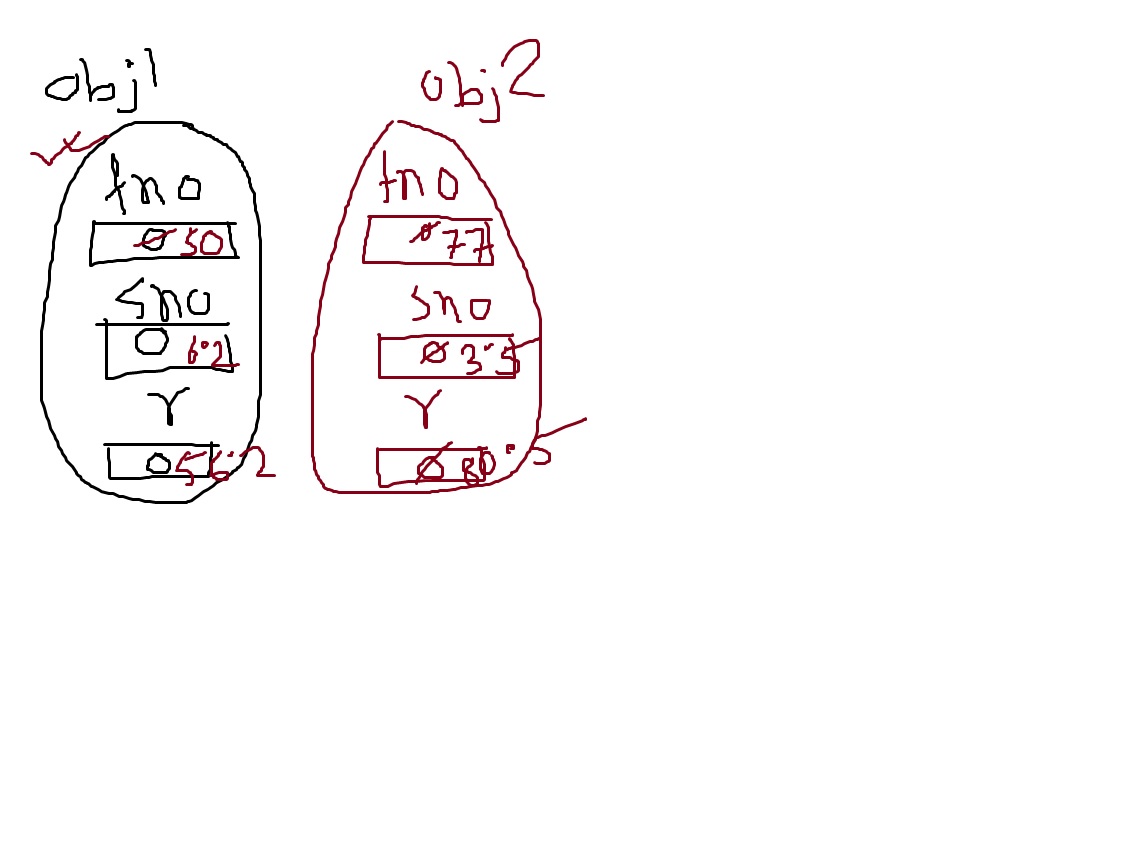 obj1
fno
0 50
sno
0 6.2
r
0 56.2
obj2
fno
0 77
sno
0 3.5
r
0 80.5